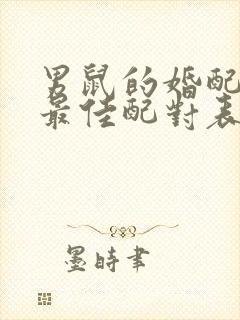 男鼠的婚配
最佳配對表
墨時書